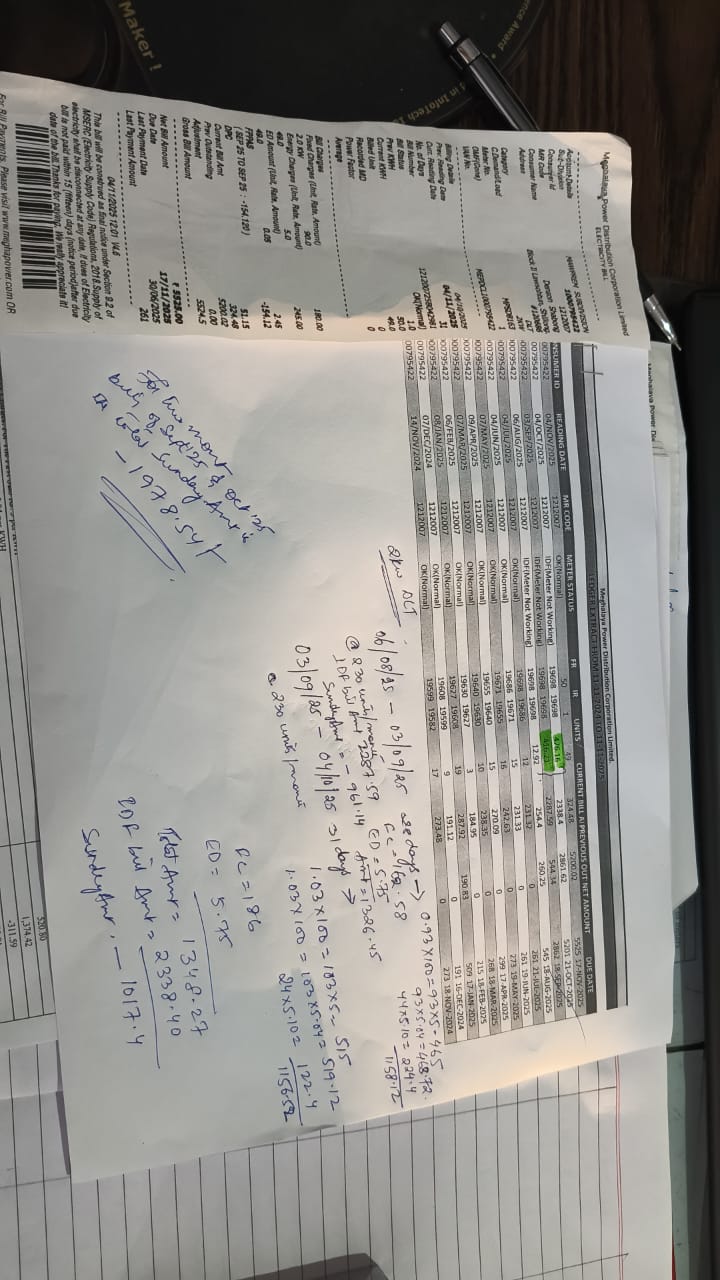 Maker !
in InfoTech
Meghalaya Power Distribution Corporation Limited
ELECTRICITY BILL
Account Details
Sub-Division MAWPREM SUBDIVISION
Consumer Id 100000795422
MR Code 1212007
Consumer Name
Address
Category DLT
C.Demand/Load 2KW
Meter No.
MMF(Cons) 1
VAN No. MEPDCL1000795422
Billing Details
Prev. Reading Date 04/10/2025
Curr. Reading Date 04/11/2025
No. of Days 31
Bill Number
Bill Status OK(Normal)
Prev KWH 1.0
Current KWH 50.0
Billed Unit 49.0
Recorded MD 0
Power Factor 0
Average
Bill Charges
Fixed Charges (Unit, Rate, Amount)
2.0 KW 90.0 180.00
Energy Charges (Unit, Rate, Amount)
49.0 5.0 245.00
ED Amount (Unit, Rate, Amount)
49.0 0.05 2.45
FPPAS -154.12
( SEP 25 TO SEP 25 : -154.12@ )
DPC 51.15
Current Bill Amt 324.48
Prev Outstanding 5200.02
Adjustment 0.00
Gross Bill Amount 5524.5
Net Bill Amount ₹ 5525.00
Due Date 17/11/2025
Last Payment Date 30/06/2025
Last Payment Amount 261
04/11/2025 12:01 V4.6
This bill will be construed as final notice under Section 9.2 of
MSERC (Electricity Supply Code) Regulations, 2018.Supply of
electricity shall be disconnected at any date, if dues of Electricity
bill is not paid within 15 (fifteen) days (notice period)after due
date of the bill.Thanks for paying. We really appreciate it!
For Bill Payments, Please visit www.meghapower.com OR
Meghalaya Power Distribution Corporation Limited.
LEDGER EXTRACT FROM 11-11-2024 TO 11-11-2025
NSUMER ID READING DATE MR CODE METER STATUS FR IR UNITS CURRENT BILL A PREVIOUS OUT NET AMOUNT DUE DATE
00795422 04/NOV/2025 1212007 OK(Normal) 50 1 49 324.48 5200.02 5525 17-NOV-2025
00795422 04/OCT/2025 1212007 IDF(Meter Not Working) 19698 19698 2338.4 2861.62 5201 21-OCT-2025
00795422 03/SEP/2025 1212007 IDF(Meter Not Working) 19698 19698 2287.59 544.34 2862 18-SEP-2025
00795422 06/AUG/2025 1212007 IDF(Meter Not Working) 19698 19698 12.92 254.4 260.25 545 18-AUG-2025
00795422 04/JUL/2025 1212007 OK(Normal) 19698 19686 12 231.32 0 261 21-JUL-2025
00795422 04/JUN/2025 1212007 OK(Normal) 19686 19671 15 231.33 0 261 19-JUN-2025
00795422 07/MAY/2025 1212007 OK(Normal) 19671 19655 16 242.63 0 273 19-MAY-2025
00795422 09/APR/2025 1212007 OK(Normal) 19655 19640 15 270.09 0 299 17-APR-2025
00795422 07/MAR/2025 1212007 OK(Normal) 19640 19630 10 238.35 0 268 18-MAR-2025
00795422 06/FEB/2025 1212007 OK(Normal) 19630 19627 3 184.95 0 215 18-FEB-2025
00795422 08/JAN/2025 1212007 OK(Normal) 19627 19608 19 287.92 190.83 509 17-JAN-2025
00795422 07/DEC/2024 1212007 OK(Normal) 19608 19599 9 191.12 0 191 16-DEC-2024
00795422 14/NOV/2024 1212007 OK(Normal) 19599 19582 17 273.48 0 273 18-NOV-2024
2kw DLT
06/08/25 - 03/09/25 28 days → 0.93×100 = 93×5 = 465
93×5.04 = 468.72
44×5.10 = 224.4
1158.12
@ 230 units/month FC = 162.58
ED = 5.75
IDF bill Amt 2287.59 Amt = 1326.45
Sundry Amt = - 961.14
03/09/25 - 04/10/25 31 days → 1.03×100 = 103×5 = 515
@ 230 units/month 1.03×100 = 103×5.04 = 519.12
24×5.10 = 122.4
1156.52
FC = 186
ED = 5.75
Total Amt = 1348.27
IDF bill Amt = 2338.40
Sundry Amt. - 1017.4
For two month
bills of Sept'25 & Oct'25
total Sundry Amt is
- 1978.54/-
520.80
1,374.42
-311.59